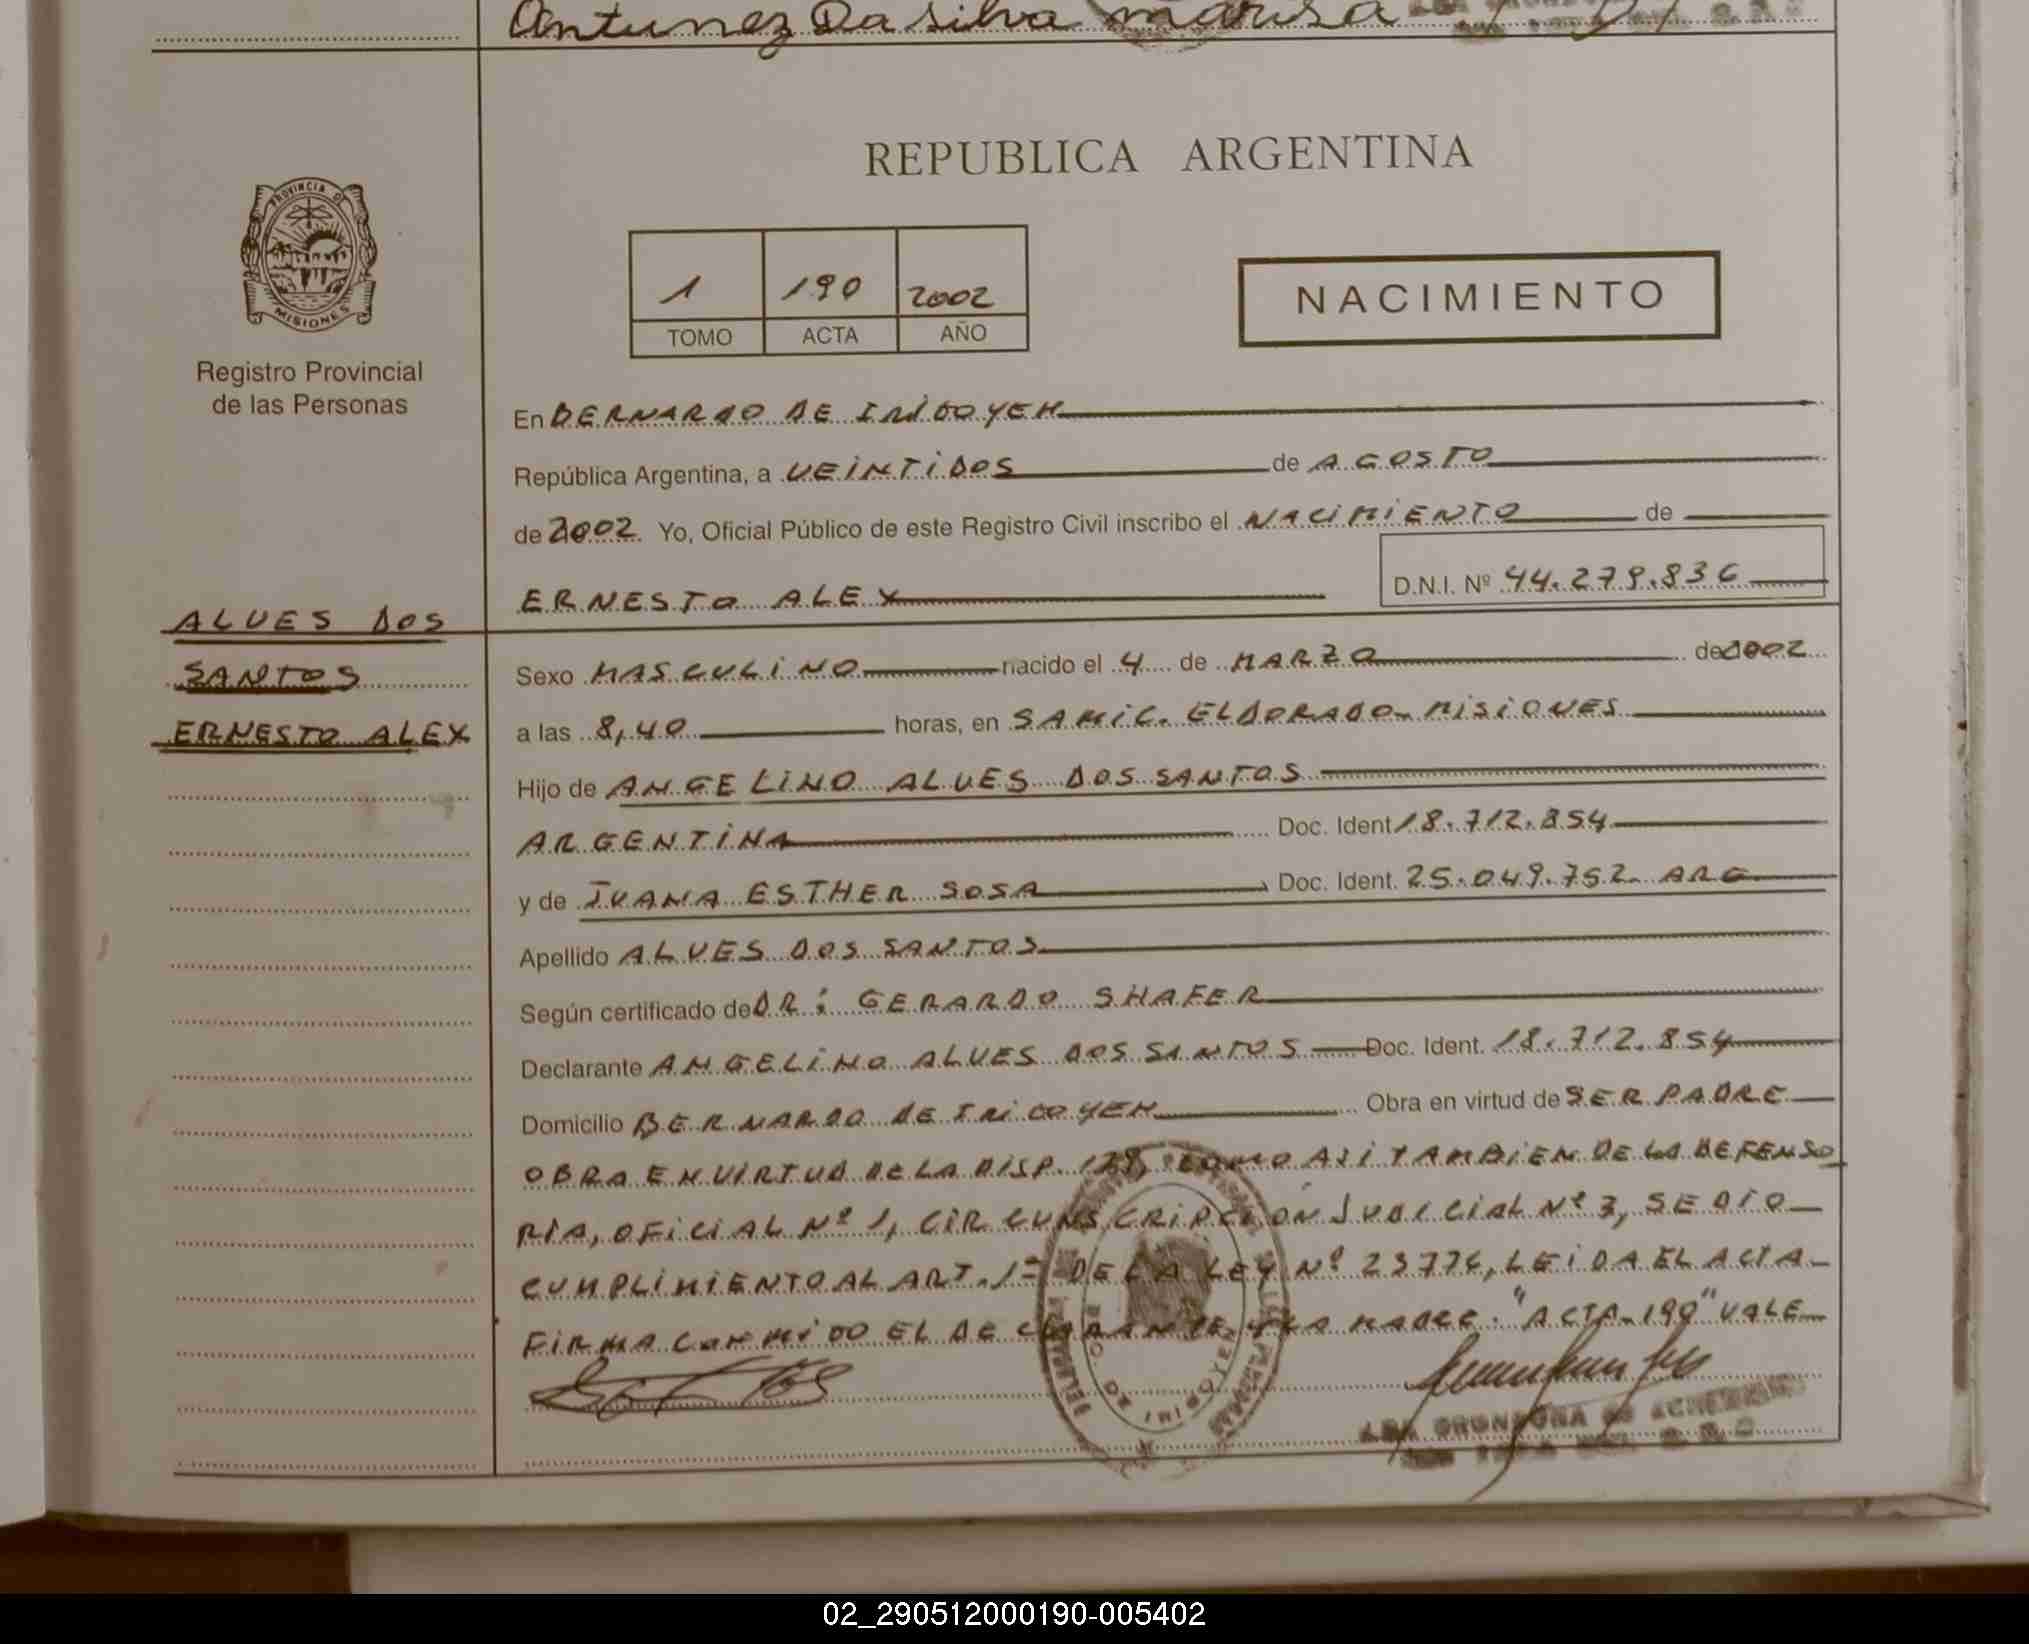 Antunez Da Silva Marisa
REPUBLICA ARGENTINA
PROVINCIA DE
MISIONES
Registro Provincial
de las Personas
1 190 2002
TOMO ACTA AÑO
NACIMIENTO
En BERNARDO DE IRIGOYEN
República Argentina, a VEINTIDOS de AGOSTO
de 2002. Yo, Oficial Público de este Registro Civil inscribo el NACIMIENTO de
ERNESTO ALEX D.N.I. Nº 44.279.836
ALVES DOS
SANTOS
ERNESTO ALEX
Sexo MASCULINO nacido el 4 de MARZO de 2002
a las 8,40 horas, en SAMIC. ELDORADO-MISIONES
Hijo de ANGELINO ALVES DOS SANTOS
ARGENTINA Doc. Ident 18.712.854
y de JUANA ESTHER SOSA Doc. Ident. 25.049.752. ARG
Apellido ALVES DOS SANTOS
Según certificado de DR: GERARDO SHAFER
Declarante ANGELINO ALVES DOS SANTOS Doc. Ident. 18.712.854
Domicilio BERNARDO DE IRIGOYEN Obra en virtud de SER PADRE
OBRA EN VIRTUD DE LA DISP. COMO ASI TAMBIEN DE LA DEFENSO
RIA, OFICIAL Nº 1, CIRCUNSCRIPCION JUDICIAL Nº 3, SE DIO
CUMPLIMIENTO AL ART. 1º DE LA LEY Nº 23776, LEIDA EL ACTA
FIRMA CONMIGO EL DECLARANTE Y LA MADRE. "ACTA-190" VALE
BDO. DE IRIGOYEN
02_290512000190-005402